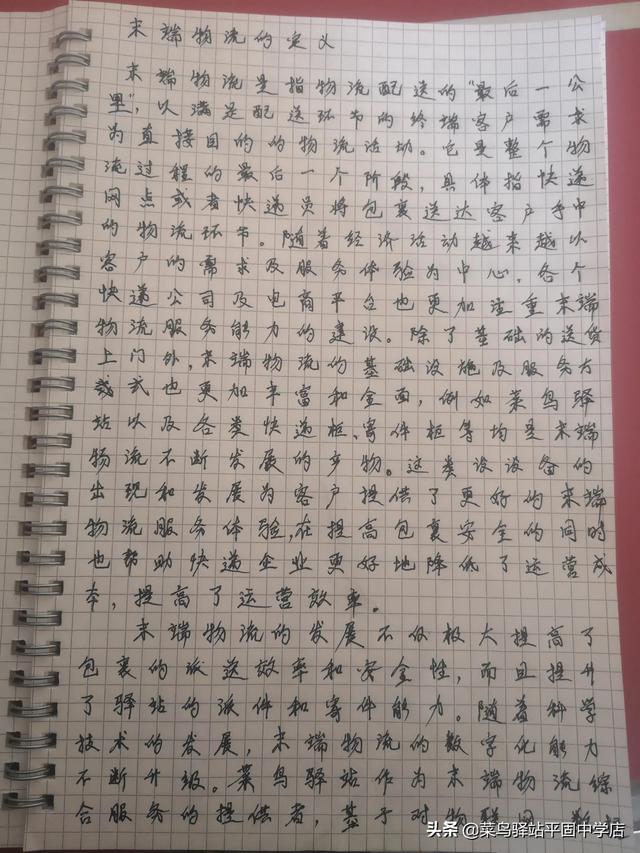 末端物流的定义
末端物流是指物流配送的“最后一公
里”，以满足配送环节的终端客户需求
为直接目的的物流活动。它是整个物
流过程的最后一个阶段，具体指快递
网点或者快递员将包裹送达客户手中
的物流环节。随着经济活动越来越以
客户的需求及服务体验为中心，各个
快递公司及电商平台也更加注重末端
物流服务能力的建设。除了基础的送货
上门外，末端物流的基础设施及服务方
式也更加丰富和全面，例如菜鸟驿
站以及各类快递柜、寄件柜等均是末端
物流不断发展的产物。这类设设备的
出现和发展为客户提供了更好的末端
物流服务体验，在提高包裹安全的同时
也帮助快递企业更好地降低了运营成
本，提高了运营效率。
末端物流的发展不仅极大提高了
包裹的派送效率和安全性，而且提升
了驿站的派件和寄件能力。随着科学
技术的发展，末端物流的数字化能力
不断升级。菜鸟驿站作为末端物流综
合服务的提供者，基于对物联网
头条 @菜鸟驿站平固中学店